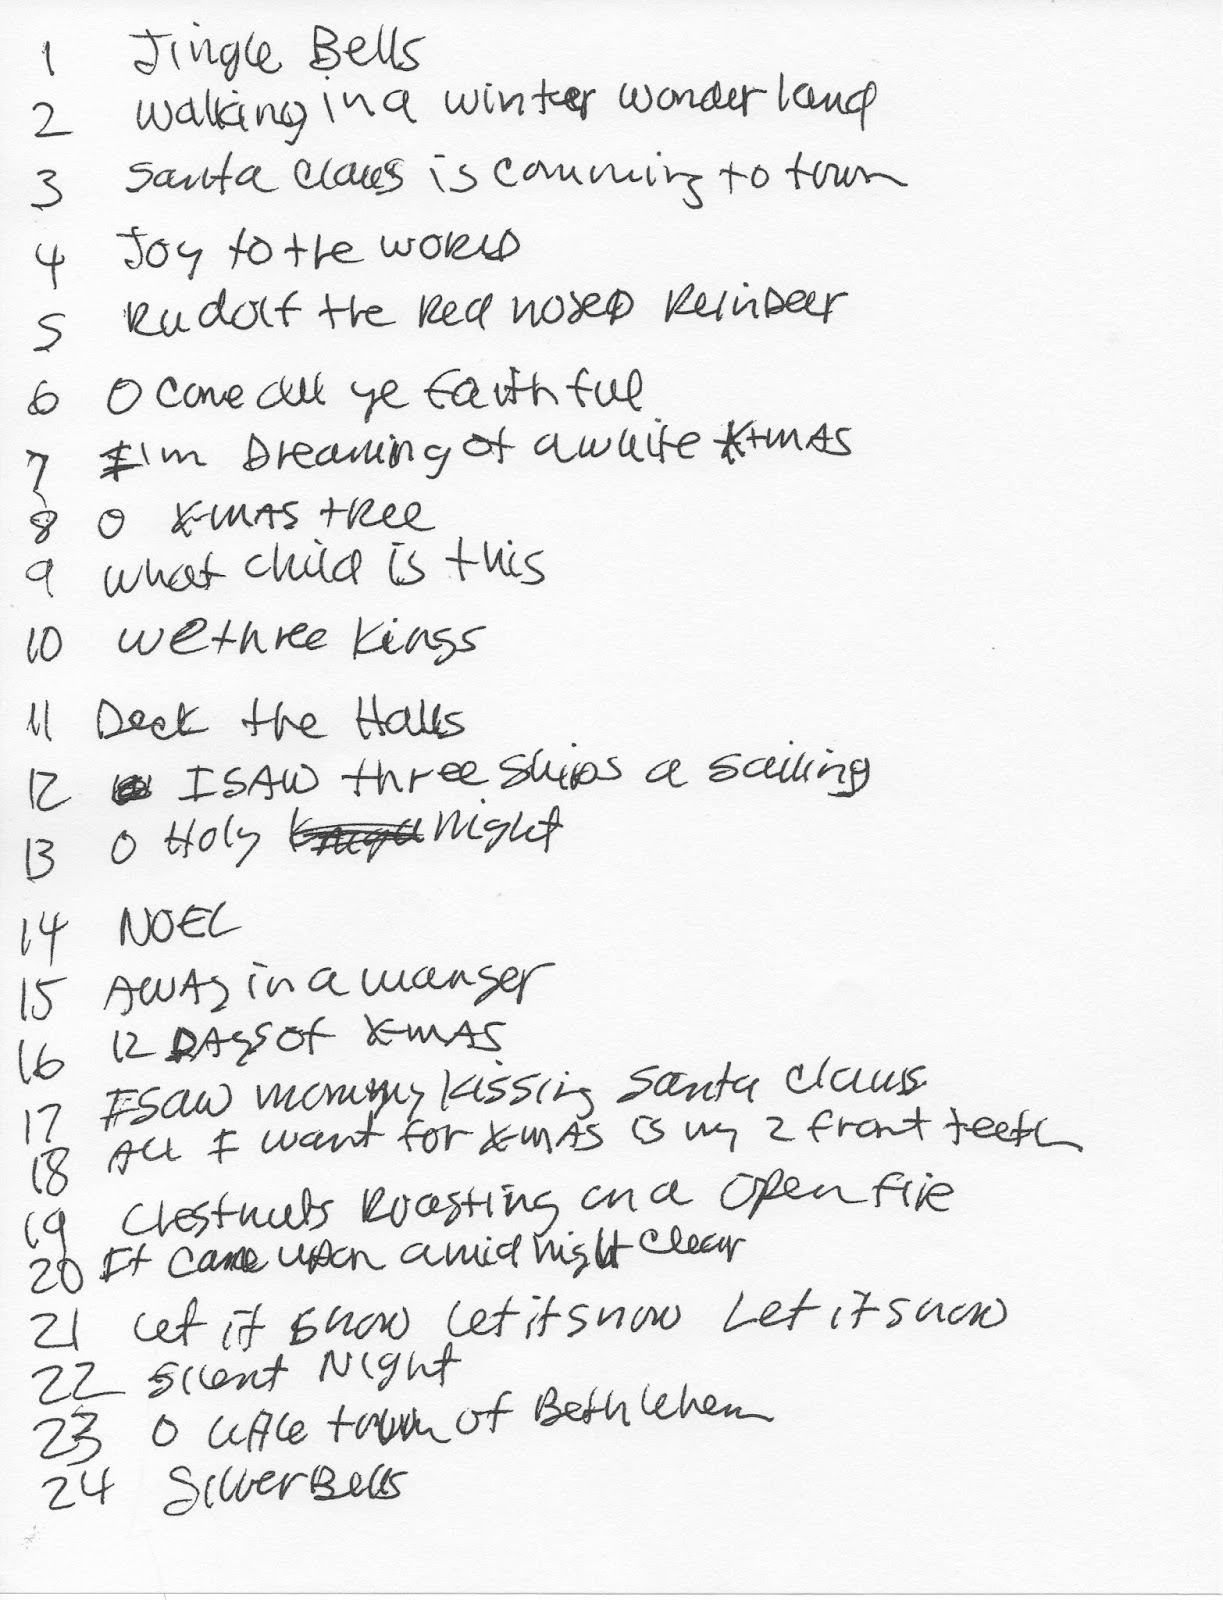 1 Jingle Bells
2 walking in a winter wonder land
3 Santa Claus is comming to town
4 Joy to the WORLD
5 Rudolf the Red nosed Reindeer
6 O come all ye faithful
7 I'm Dreaming of a white X-MAS
8 O X-MAS tree
9 what child is this
10 we three kings
11 Deck the Halls
12 I SAW three ships a sailing
13 O Holy night
14 NOEL
15 AWAy in a manger
16 12 DAys of X-MAS
17 I saw mommy kissing Santa Claus
18 All I want for X-MAS is my 2 front teeth
19 Chestnuts Roasting on a open fire
20 It came upon a midnight clear
21 Let it snow Let it snow Let it snow
22 Silent Night
23 O little town of Bethlehem
24 Silver Bells